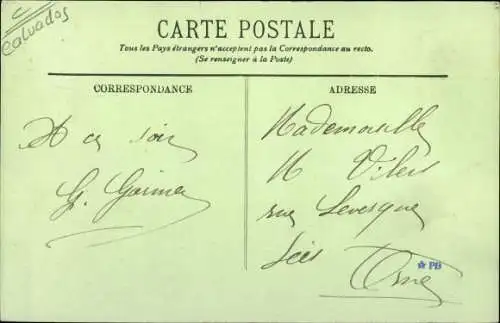 Calvados
CARTE POSTALE
Tous les Pays étrangers n'acceptent pas la Correspondance au recto.
(Se renseigner à la Poste)
CORRESPONDANCE
A ce soir
G.
ADRESSE
Mademoiselle
rue Levesque
Sées
Orne
PB